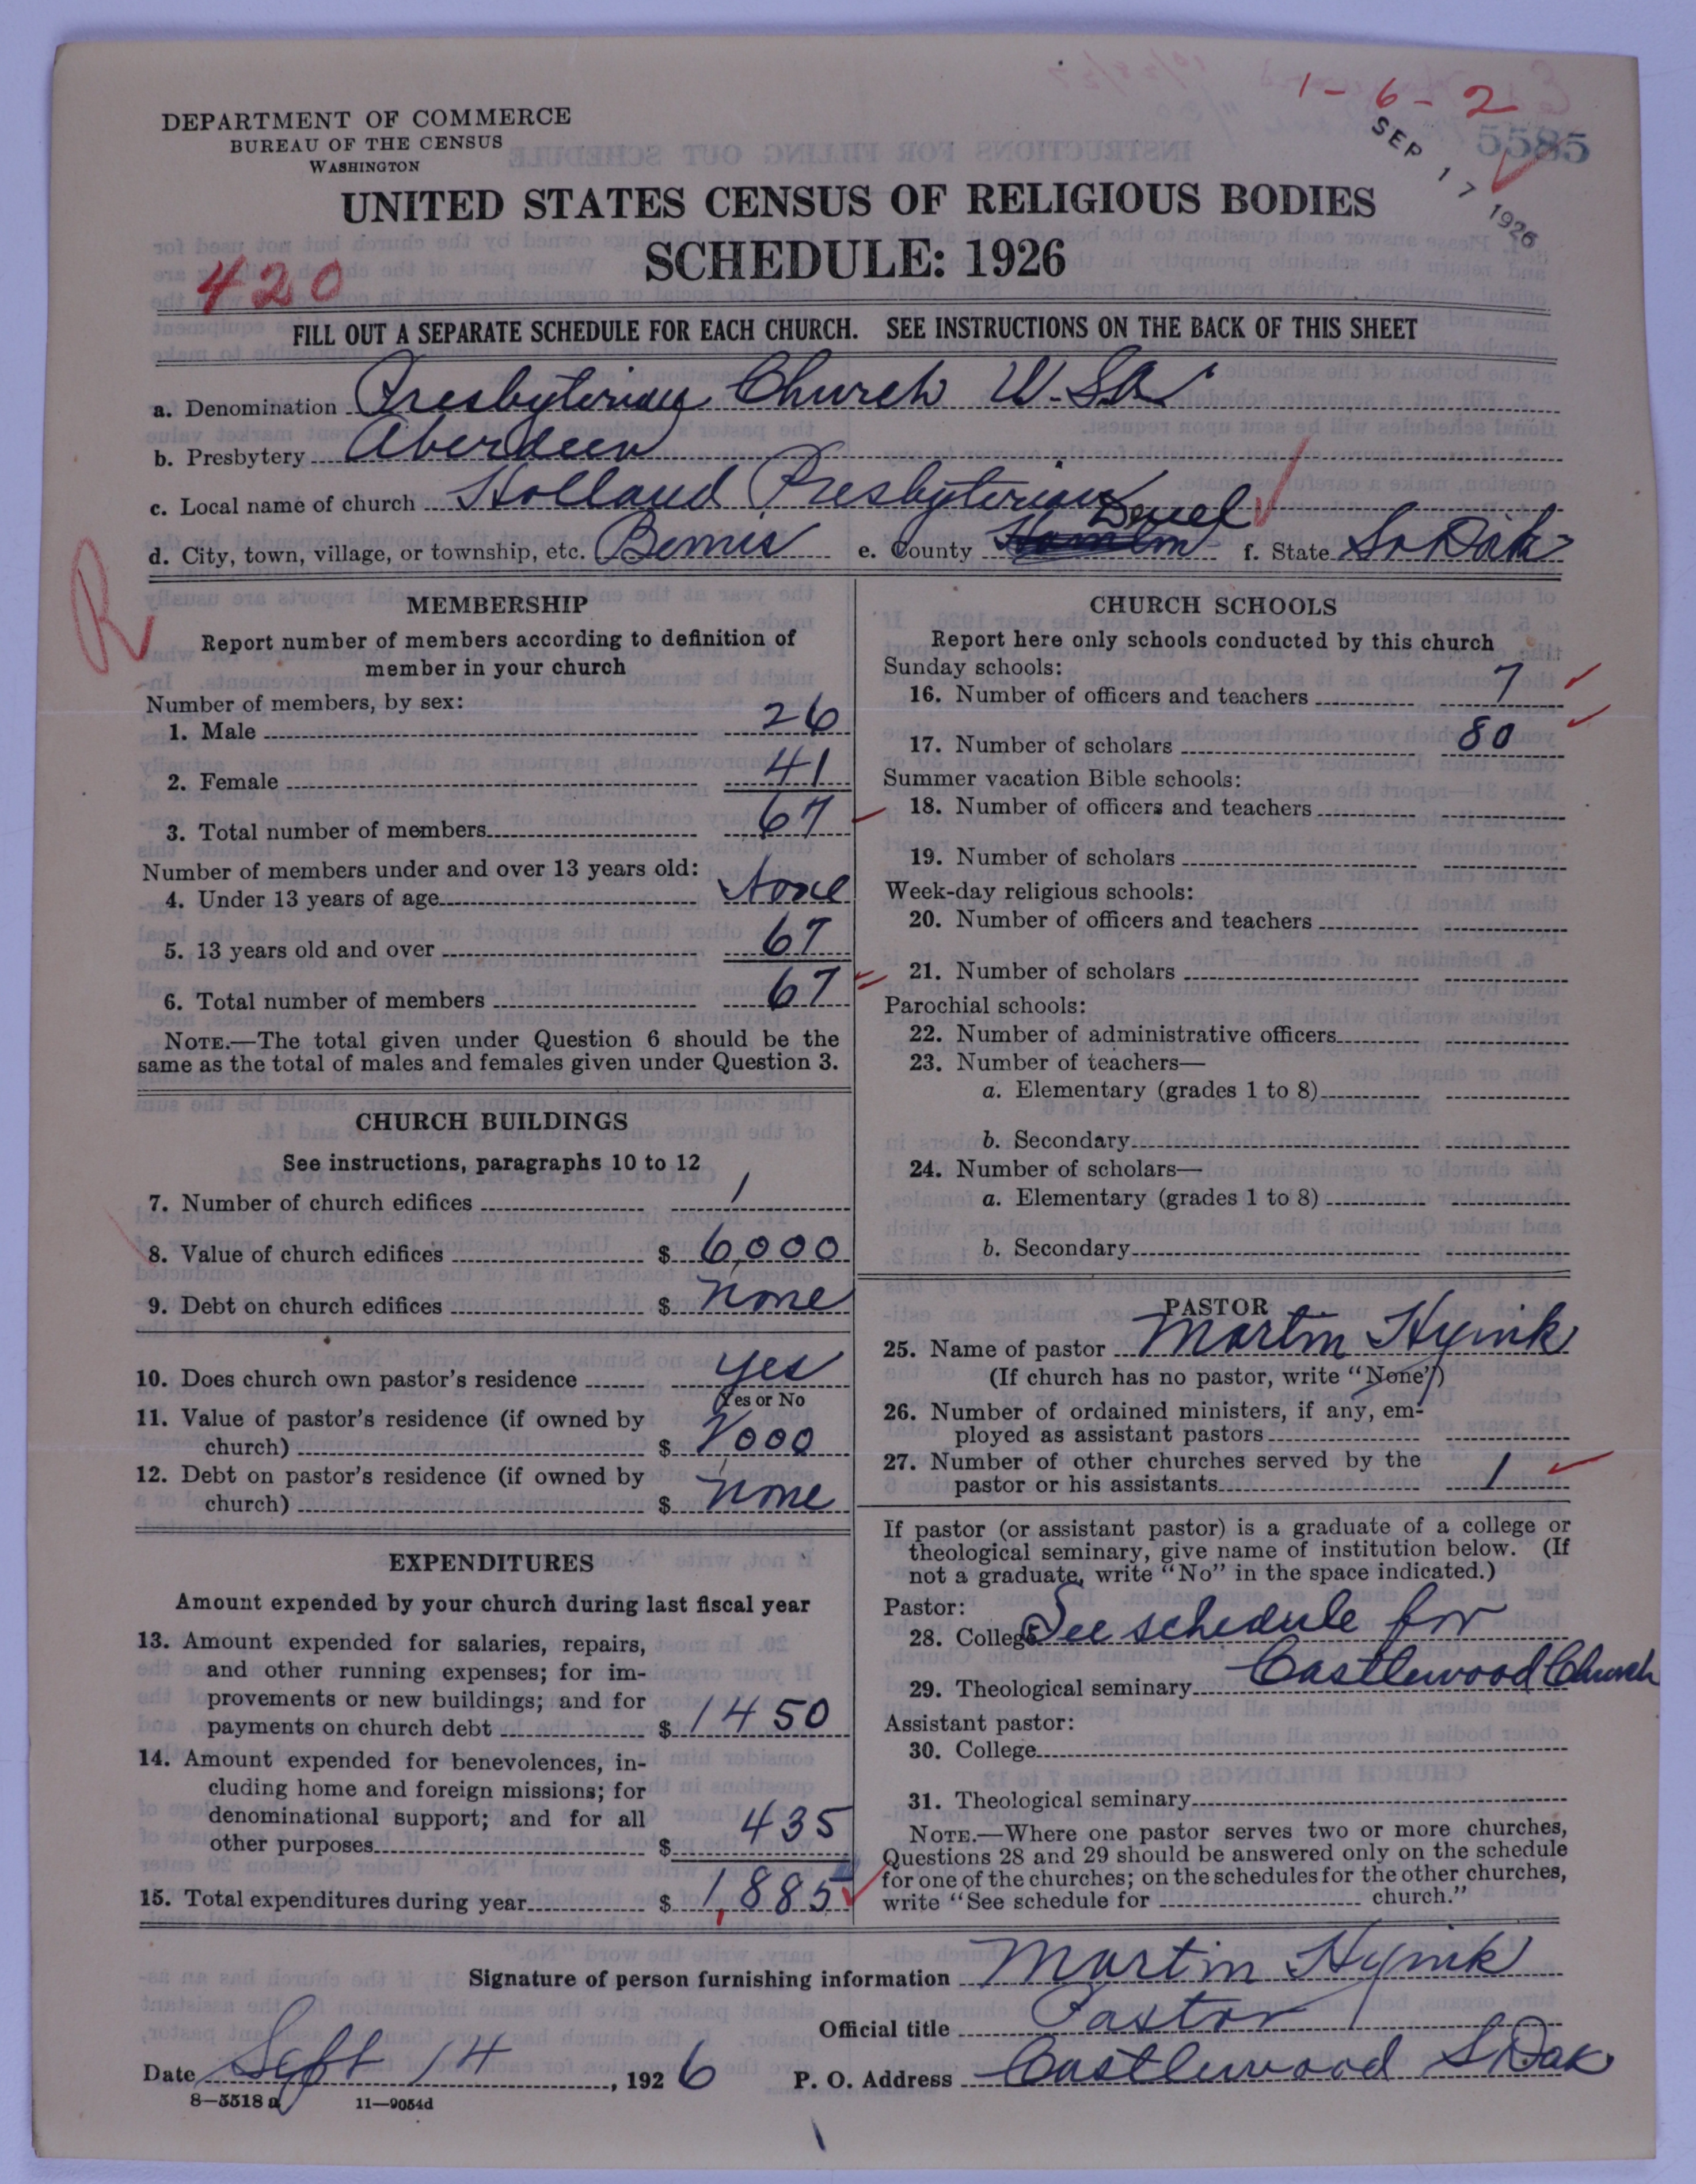 1-6-2
5585
SEP 17 1926
DEPARTMENT OF COMMERCE
BUREAU OF THE CENSUS
WASHINGTON
UNITED STATES CENSUS OF RELIGIOUS BODIES
SCHEDULE: 1926
420
FILL OUT A SEPARATE SCHEDULE FOR EACH CHURCH. SEE INSTRUCTIONS ON THE BACK OF THIS SHEET
a. Denomination Presbyterian Church U.S.A.
b. Presbytery Aberdeen
c. Local name of church Holland Presbyterian
d. City, town, village, or township, etc. Bemis e. County Hamlin Deuel f. State So Dak
R
MEMBERSHIP
Report number of members according to definition of
member in your church
Number of members, by sex:
1. Male 26
2. Female 41
3. Total number of members 67
Number of members under and over 13 years old:
4. Under 13 years of age None
5. 13 years old and over 67
6. Total number of members 67
NOTE.—The total given under Question 6 should be the
same as the total of males and females given under Question 3.
CHURCH BUILDINGS
See instructions, paragraphs 10 to 12
7. Number of church edifices 1
8. Value of church edifices $ 6,000
9. Debt on church edifices $ None
10. Does church own pastor's residence yes
Yes or No
11. Value of pastor's residence (if owned by
church) $ 2000
12. Debt on pastor's residence (if owned by
church) $ None
EXPENDITURES
Amount expended by your church during last fiscal year
13. Amount expended for salaries, repairs,
and other running expenses; for im-
provements or new buildings; and for
payments on church debt $ 1450
14. Amount expended for benevolences, in-
cluding home and foreign missions; for
denominational support; and for all
other purposes $ 435
15. Total expenditures during year $ 1,885
CHURCH SCHOOLS
Report here only schools conducted by this church
Sunday schools:
16. Number of officers and teachers 7
17. Number of scholars 80
Summer vacation Bible schools:
18. Number of officers and teachers
19. Number of scholars
Week-day religious schools:
20. Number of officers and teachers
21. Number of scholars
Parochial schools:
22. Number of administrative officers
23. Number of teachers—
a. Elementary (grades 1 to 8)
b. Secondary
24. Number of scholars—
a. Elementary (grades 1 to 8)
b. Secondary
PASTOR
25. Name of pastor Martin Hyink
(If church has no pastor, write "None")
26. Number of ordained ministers, if any, em-
ployed as assistant pastors
27. Number of other churches served by the
pastor or his assistants 1
If pastor (or assistant pastor) is a graduate of a college or
theological seminary, give name of institution below. (If
not a graduate, write "No" in the space indicated.)
Pastor:
28. College See schedule for
29. Theological seminary Castlewood Church
Assistant pastor:
30. College
31. Theological seminary
NOTE.—Where one pastor serves two or more churches,
Questions 28 and 29 should be answered only on the schedule
for one of the churches; on the schedules for the other churches,
write "See schedule for church."
Signature of person furnishing information Martin Hyink
Official title Pastor
Date Sept 14, 1926 P. O. Address Castlewood S Dak
8—5518 a 11—9054d